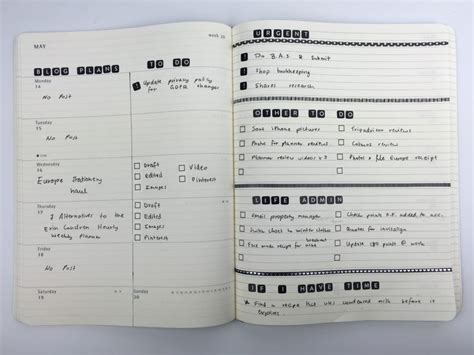 week 20
MAY
BLOG PLANS
TO DO
Monday
14
No Post
Update privacy policy
for GDPR changes
Tuesday
15
No Post
Wednesday
16
Europe Stationery
haul
Draft
Edited
Images
Video
Pinterest
Thursday
17
7 Alternatives to the
Erin Condren Hourly
Weekly Planner
Draft
Edited
Images
Pinterest
Friday
18
No Post
Saturday
19
Sunday
20
URGENT
1 Do B.A.S & Submit
1 Shop bookkeeping
1 Shares research
OTHER TO DO
Save iPhone pictures
Tripadvisor reviews
Photos for planner reviews
reviews
Planner review videos x3
Photos & file Europe receipt
LIFE ADMIN
Email property manager
Check points added to acc.
Switch shoes to winter clothes
Quotes for
recipe for
Update @ work
IF I HAVE TIME
Find a recipe that uses condensed milk before it
expires